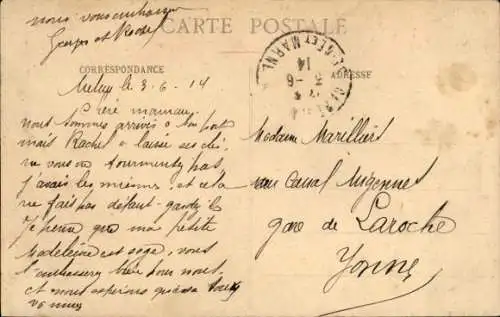 nous vous embrassons
Georges et Rachel
CARTE POSTALE
CORRESPONDANCE
ADRESSE
SEINE ET MARNE
3-6
14
Melun le 3-6-14
Chère maman,
nous sommes arrivés à bon port
mais Rachel a laissé ses clés,
ne vous en tourmentez pas,
j'avais les miennes, et cela
ne fait pas défaut - gardez les
Je pense que ma petite
Madeleine est sage, vous
l'embrasserez bien pour nous,
et nous espérons que vous
Madame Marillier
au Canal
gare de Laroche
Yonne